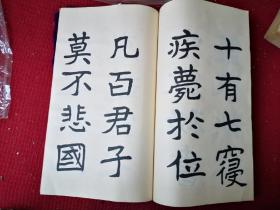 十有七寢
疾薨於位
凡百君子
莫不悲國